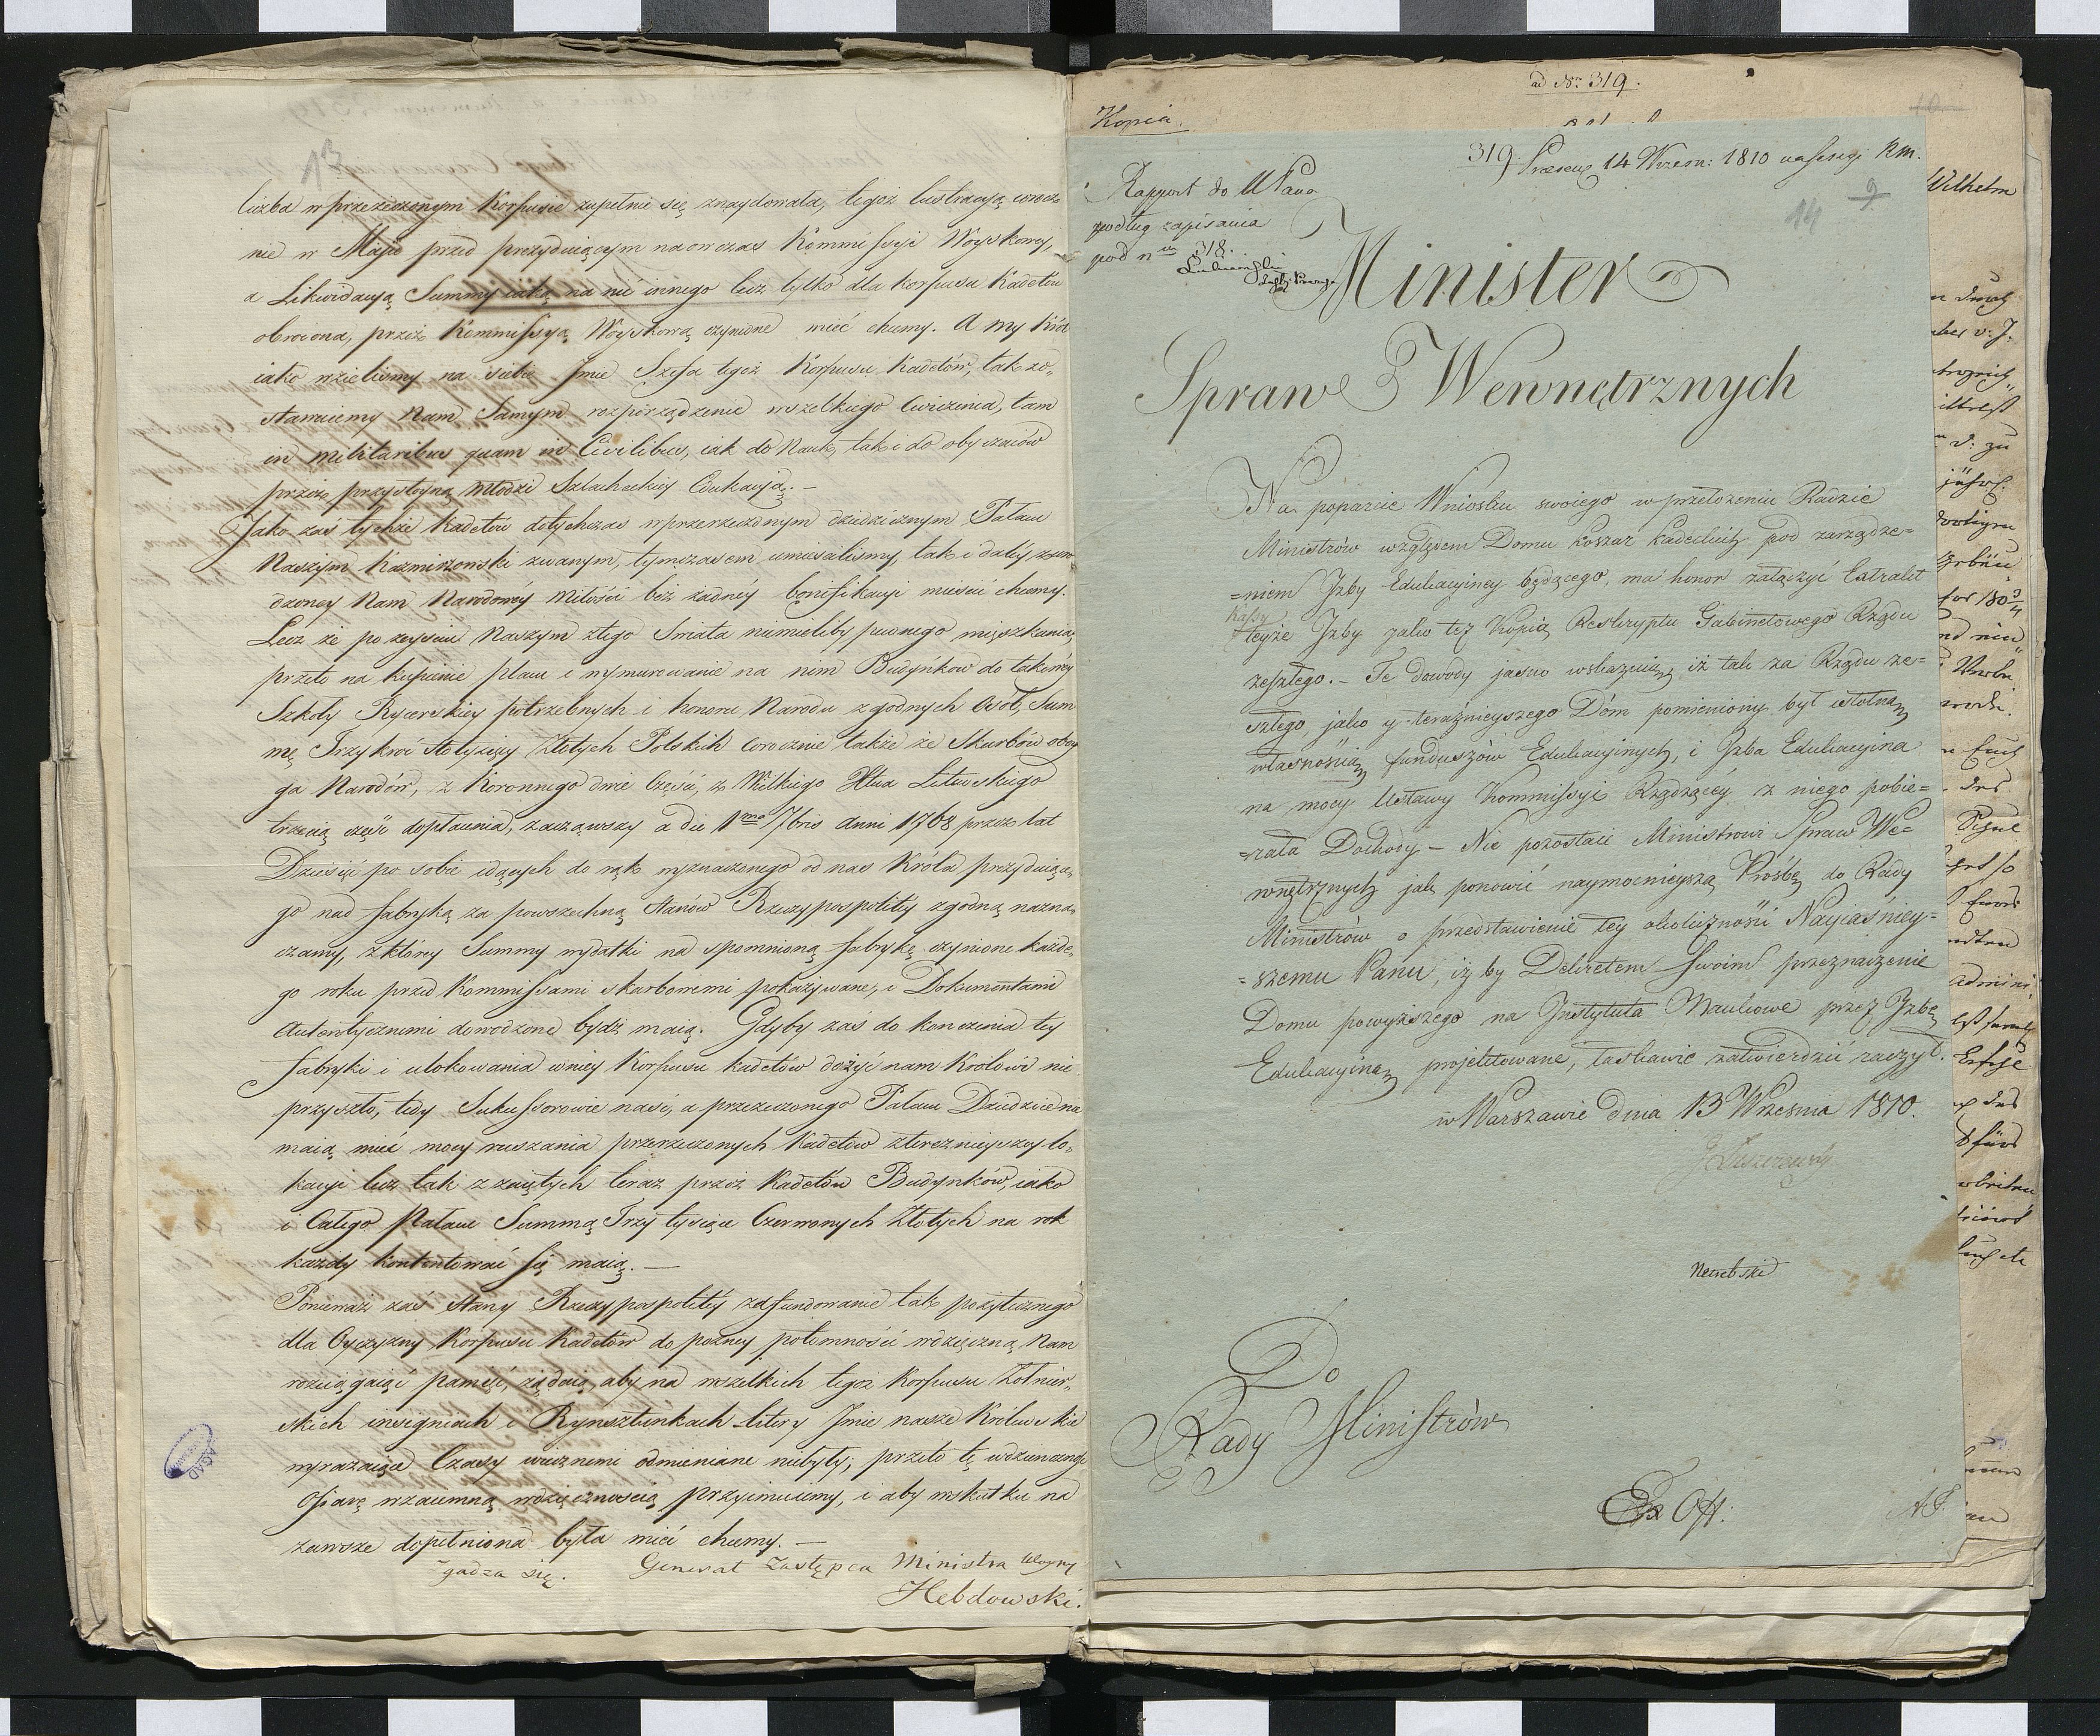 13
liczba w przerzeczonym Korpusie zupełnie się znaydowała, tegoż lustracyą corocz
nie w Maju przed prezyduiącym naowczas Kommissyi Woyskowey,
a Likwidacyą Summy iaka na nic innego lecz tylko dla Korpusu Kadetów
obrocona, przez Kommissyą Woyskową czynione mieć chcemy. A my Król
iako wzieliśmy na siebie Imie Szefa tegoż Korpusu Kadetów, tak zo„
stawuiemy Nam Samym rozporządzenie wszelkiego ćwiczenia, tam
in militaribus quam in Civilibus, iak do Nauk, tak i do obyczaiów
przez przystoyną młodzi Szlacheckiey Edukacyą. —
Jako zaś tychże Kadetów dotychczas w przerzeczonym dziedzicznym Pałacu
Naszym Kazmirzowski zwanym, tymczasem umieściliśmy, tak i daléy z wro
dzoney Nam Narodowéy miłości bez żadnéy bonifikacyi mieścić chcemy.
Lecz że po zeysciu Naszym z tego Świata niemieliby pewnego mięszkania,
przeto na kupienie placu i wymurowanie na nim Budynkow do takowéy
Szkoły Rycerskiey potrzebnych i honoru Narodu zgodnych Osób, Sum
mę Trzykroć Stotysięcy Złotych Polskich corocznie także ze Skarbów oboy
ga Narodów, z Koronnego dwie Części, z Wielkiego Xtwa Litewskiego
trzecią część dopłacenia, zacząwszy a die 1ma 7bris Anni 1768 przez lat
Dziesięć po sobie idących do rąk wyznaczonego od nas Króla prezyduiące
go nad fabryką za powszechną Stanów Rzeczypospolitéy zgodną nazna„
czamy, z którey Summy wydatki na spomnioną fabrykę czynione każde„
go roku przed Kommissami skarbowemi pokazywane, i Dokumentami
Autentycznemi dowodzone bydź maią. Gdyby zaś do kończenia téy
fabryki i ulokowania w niey Korpusu Kadetów dożyć nam Królowi nie
przyszło, tedy Sukcessorowie nasi, a przerzeczonego Pałacu Dziedzice nie
maią mieć mocy ruszania przerzeczonych Kadetów z terezniéyszey lo„
kacyi lecz tak z zaiętych teraz przez Kadetów Budynków, iako
i Całego Pałacu Summą Trzy tysiące Czerwonych Złotych na rok
każdy kontentować się maią. —
Ponieważ zaś Stany Rzeczypospolitéy zafundowanie tak pożytecznego
dla Oyczyzny Korpusu Kadetów do pozney potomności wdzięczną Nam
rościągaiąc pamięć, żądaią, aby na wszelkich tegoż Korpusu Żołnier„
skich insigniach i Rynsztunkach litery Jmie nasze Królewskie
wyrażaiące Czasy wiecznemi odmieniane niebyły; przeto tę wdzięczną
ofiarę wzaiemną wdzięcznością przyimuiemy, i aby w skutku na
zawsze dopełniona była mieć chcemy. —
Zgadza się. Generał Zastępca Ministra Woyny
Hebdowski.
AGAD
ad No 319.
Kopia
319. Praesent 14 Wrzesn: 1810 na sessyi R m.
Rapport do N Pana
podług zapisania
pod nm 318.
14
9
Minister
Spraw Wewnętrznych
Na poparcie Wniosku swoiego w przełożeniu Radzie
Ministrów względem Domu Koszar Kadeckich pod zarządze=
=niem Izby Edukacyiney będącego, ma honor załączyć Extrakt
Kassy
teyże Izby jako też Kopią Reskryptu Gabinetowego Rządu
zeszłego. — Te dowody jasno wskazuią, iż tak za Rządu ze=
szłego, jako y teraźnieyszego Dóm pomieniony był istotną
własnością funduszów Edukacyinych, i Izba Edukacyina
na mocy Ustawy Kommissyi Rządzącéy z niego pobie=
=rała Dochody — Nie pozostaie Ministrowi Spraw We=
wnętrznych jak ponowić naymocnieyszą Prośbę do Rady
Ministrów o przedstawienie téy okoliczności Nayiaśniey=
=szemu Panu, iż by Dekretem Swoim przeznaczenie
Domu powyższego na Instytuta Naukowe przez Izbę
Edukacyiną projektowane, łaskawie zatwierdzić raczył.
w Warszawie dnia 13 Wrzesnia 1810.
J Łuszczewski
Do
Rady Ministrów
Ex Off:
Wilhelm